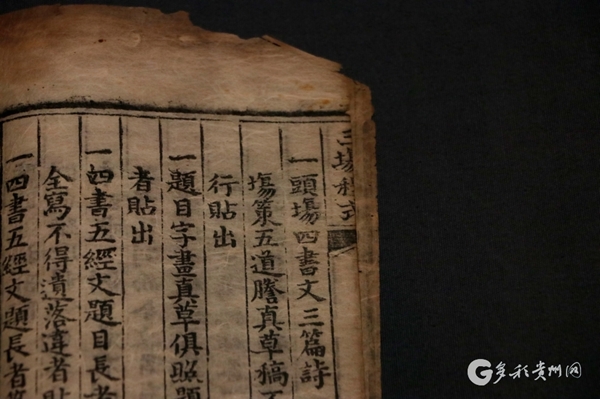 三場程式
一頭場四書文三篇詩
場策五道謄真草稿不
行貼出
一題目字畫真草俱照題
者貼出
一四書五經文題目長者
全寫不得遺落違者貼
一四書五經文題長者
多彩贵州网